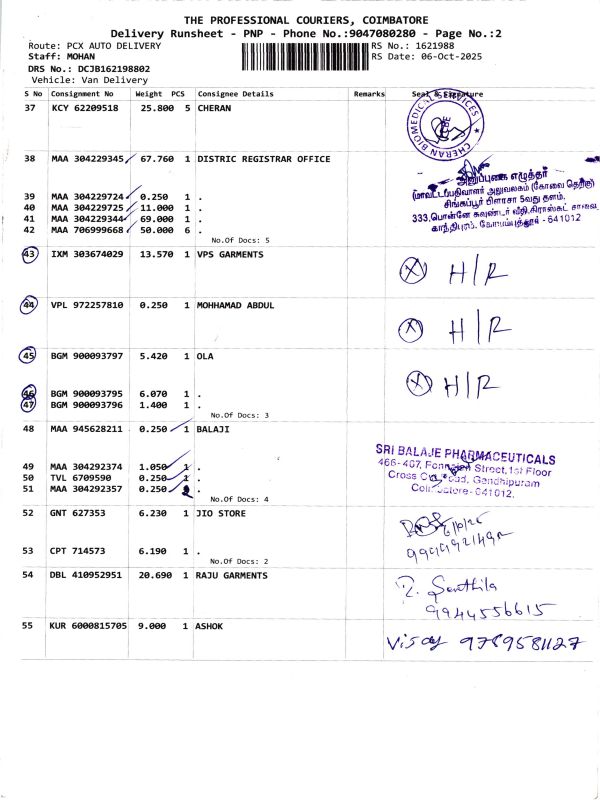 THE PROFESSIONAL COURIERS, COIMBATORE
Delivery Runsheet - PNP - Phone No.:9047080280 - Page No.:2
Route: PCX AUTO DELIVERY RS No.: 1621988
Staff: MOHAN RS Date: 06-Oct-2025
DRS No.: DCJB162198802
Vehicle: Van Delivery
S No Consignment No Weight PCS Consignee Details Remarks Seal & Signature
37 KCY 62209518 25.800 5 CHERAN
CHERAN BIOMEDICAL SERVICES
38 MAA 304229345 67.760 1 DISTRIC REGISTRAR OFFICE
அனுப்புகை எழுத்தர்
(மாவட்டப்பதிவாளர் அலுவலகம் (கோவை தெற்கு)
39 MAA 304229724 0.250 1 .
சிங்கப்பூர் பிளாசா 5வது தளம்,
40 MAA 304229725 11.000 1 .
333,பொன்னே கவுண்டர் வீதி,கிராஸ்கட் சாலை,
41 MAA 304229344 69.000 1 .
காந்திபுரம், கோயம்புத்தூர் - 641012
42 MAA 706999668 50.000 6 .
No.Of Docs: 5
43 IXM 303674029 13.570 1 VPS GARMENTS
X H/R
44 VPL 972257810 0.250 1 MOHHAMAD ABDUL
X H/R
45 BGM 900093797 5.420 1 OLA
X H/R
46 BGM 900093795 6.070 1 .
47 BGM 900093796 1.400 1 .
No.Of Docs: 3
48 MAA 945628211 0.250 1 BALAJI
SRI BALAJE PHARMACEUTICALS
466-467, Street, 1st Floor
49 MAA 304292374 1.050 1 .
Cross Gandhipuram
50 TVL 6709590 0.250 1 .
Coimbatore-641012.
51 MAA 304292357 0.250 .
No.Of Docs: 4
52 GNT 627353 6.230 1 JIO STORE
53 CPT 714573 6.190 1 .
No.Of Docs: 2
54 DBL 410952951 20.690 1 RAJU GARMENTS
Senthila
9944556615
55 KUR 6000815705 9.000 1 ASHOK
Vijay 9789581127